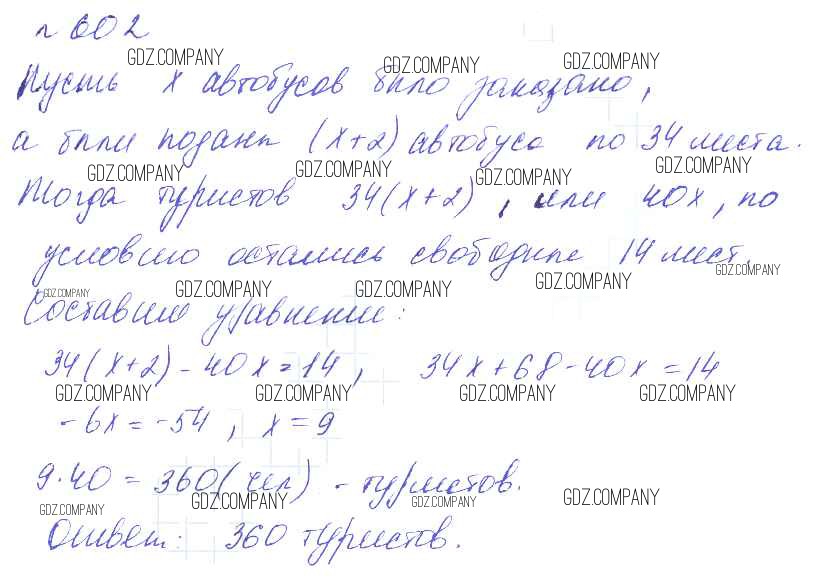 № 602
Пусть x автобусов было заказано,
а были поданы (x+2) автобуса по 34 места.
Тогда туристов 34(x+2), или 40x, по
условию остались свободные 14 мест.
Составим уравнение:
34(x+2) - 40x = 14, 34x + 68 - 40x = 14
-6x = -54, x = 9
9·40 = 360 (чел) - туристов.
Ответ: 360 туристов.
GDZ.COMPANY GDZ.COMPANY GDZ.COMPANY
GDZ.COMPANY GDZ.COMPANY GDZ.COMPANY GDZ.COMPANY
GDZ.COMPANY GDZ.COMPANY GDZ.COMPANY GDZ.COMPANY GDZ.COMPANY
GDZ.COMPANY GDZ.COMPANY GDZ.COMPANY GDZ.COMPANY
GDZ.COMPANY GDZ.COMPANY GDZ.COMPANY GDZ.COMPANY